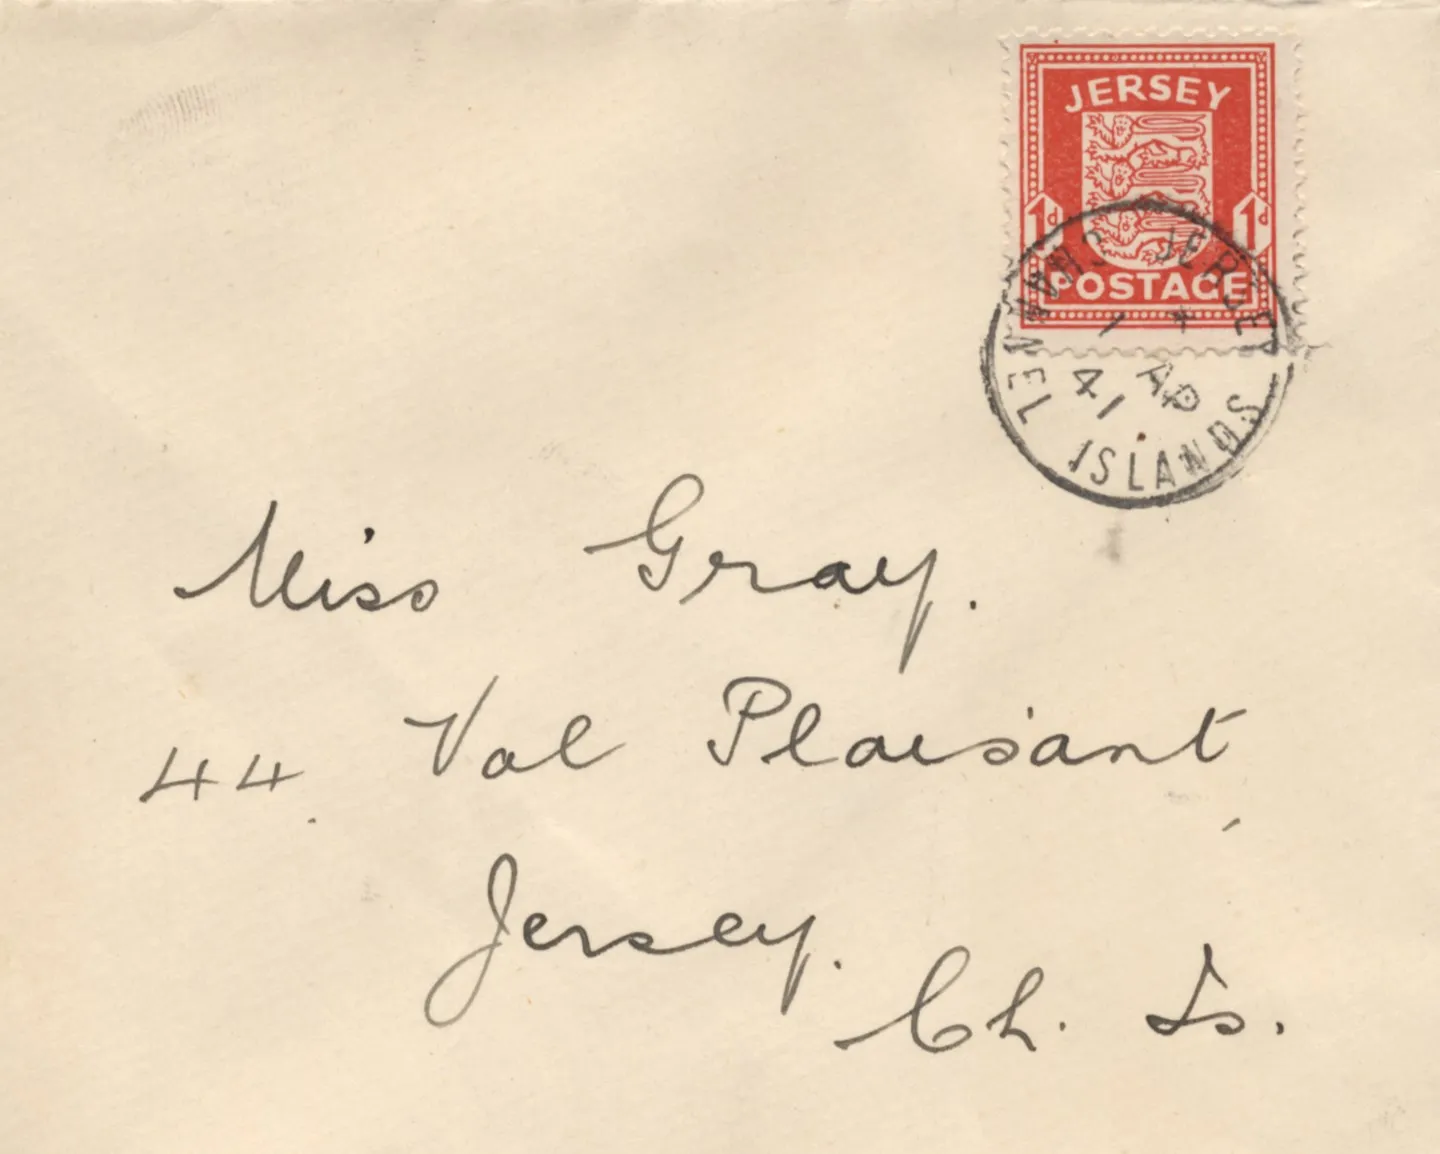 JERSEY
1d 1d
POSTAGE
JERSEY CHANNEL ISLANDS
1 AP
41
Miss Gray.
44. Val Plaisant
Jersey.
Ch. Is.